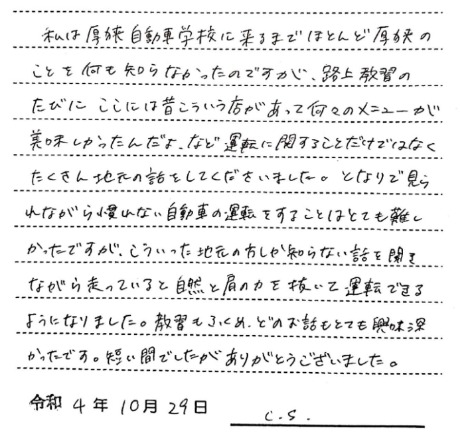 私は厚狭自動車学校に来るまでほとんど厚狭の
ことを何も知らなかったのですが、路上教習の
たびにここには昔こういう店があって何々のメニューが
美味しかったんだよ、など運転に関することだけではなく
たくさん地元の話をしてくださいました。となりで見ら
れながら慣れない自動車の運転をすることはとても難し
かったですが、こういった地元の方しか知らない話を聞き
ながら走っていると自然と肩の力を抜いて運転できる
ようになりました。教習もふくめ、どのお話もとても興味深
かったです。短い間でしたがありがとうございました。
令和 4 年 10 月 29 日 C.S.